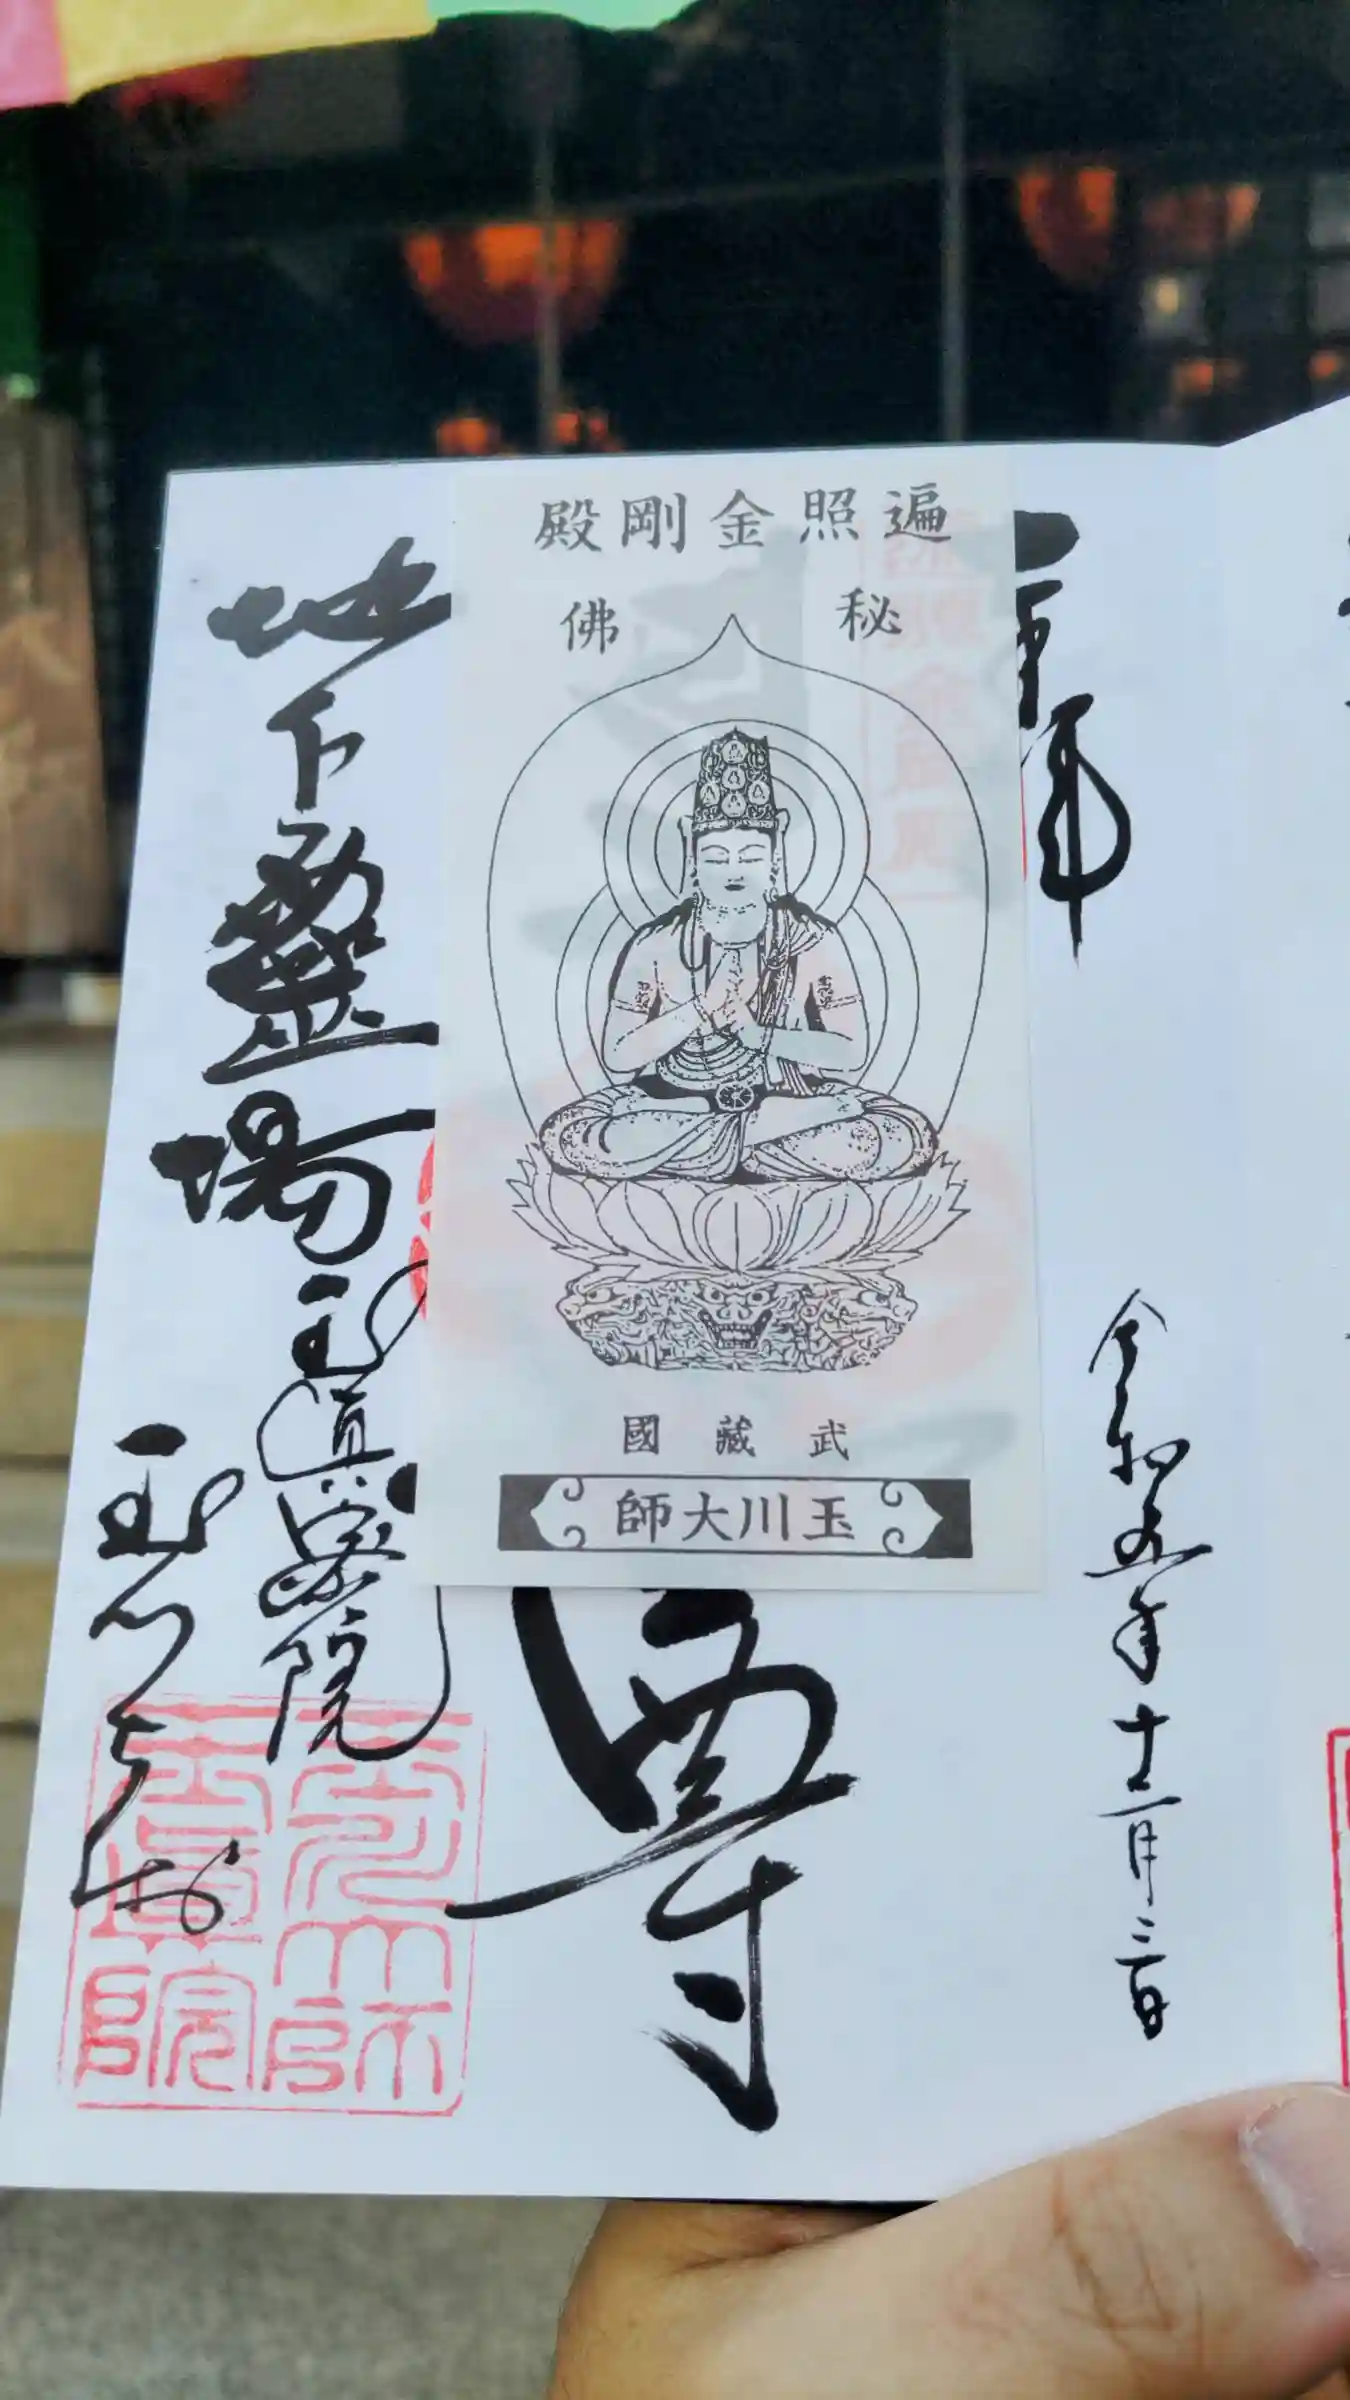 遍照金剛殿
秘佛
武藏國
玉川大師
奉拝
令和五年十二月三日
尊
地下靈場
玉眞密院